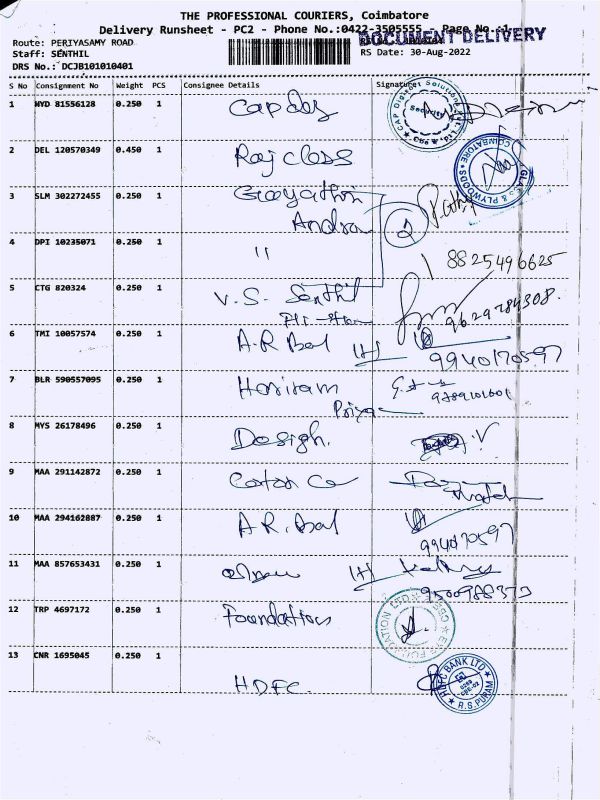 THE PROFESSIONAL COURIERS, Coimbatore
Delivery Runsheet - PC2 - Phone No.:0422-3505555 - Page No.:1
DOCUMENT DELIVERY
Route: PERIYASAMY ROAD
Staff: SENTHIL
RS Date: 30-Aug-2022
DRS No.: DCJB101010401
S No Consignment No Weight PCS Consignee Details Signature
1 HYD 81556128 0.250 1
CAP DIGI Solutions Security CBE
2 DEL 120570349 0.450 1 Raj class
GLASS & PLYWOODS COIMBATORE
3 SLM 302272455 0.250 1 Gayathri
Andra 2
4 DPI 10235071 0.250 1 "
8825496625
5 CTG 820324 0.250 1 V. S. Senthil
9629784308.
6 TMI 10057574 0.250 1 A.R Bal
9940170597
7 BLR 590557095 0.250 1 Hariram
Priya
8 MYS 26178496 0.250 1 Design. V
9 MAA 291142872 0.250 1
10 MAA 294162887 0.250 1 A R. Bal
11 MAA 857653431 0.250 1
9500988373
12 TRP 4697172 0.250 1 foundation
FOUNDATION LTD
13 CNR 1695045 0.250 1 HDFC.
HDFC BANK LTD R.S. PURAM